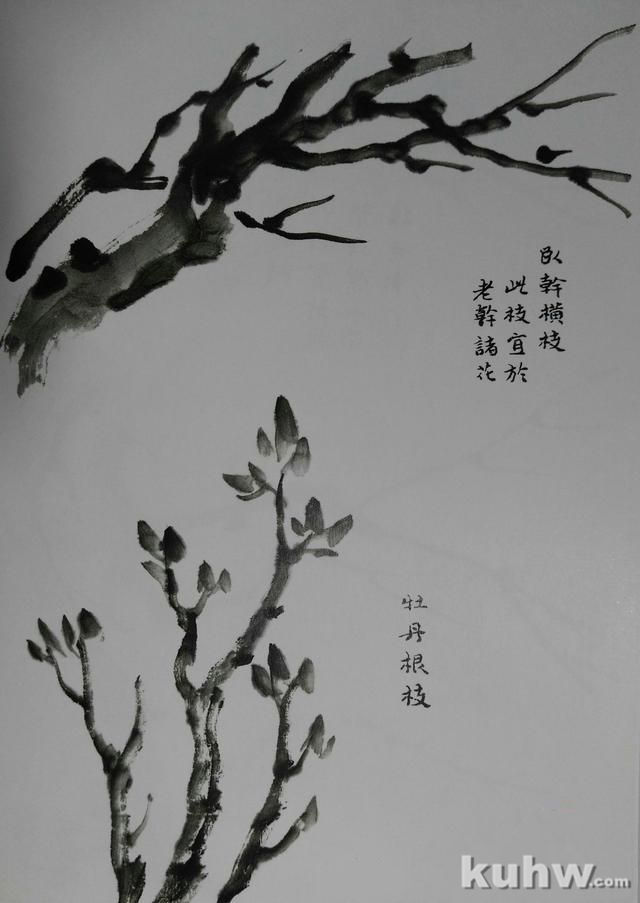 臥幹橫枝
此枝宜於
老幹諸花
牡丹根枝
kuhw.com